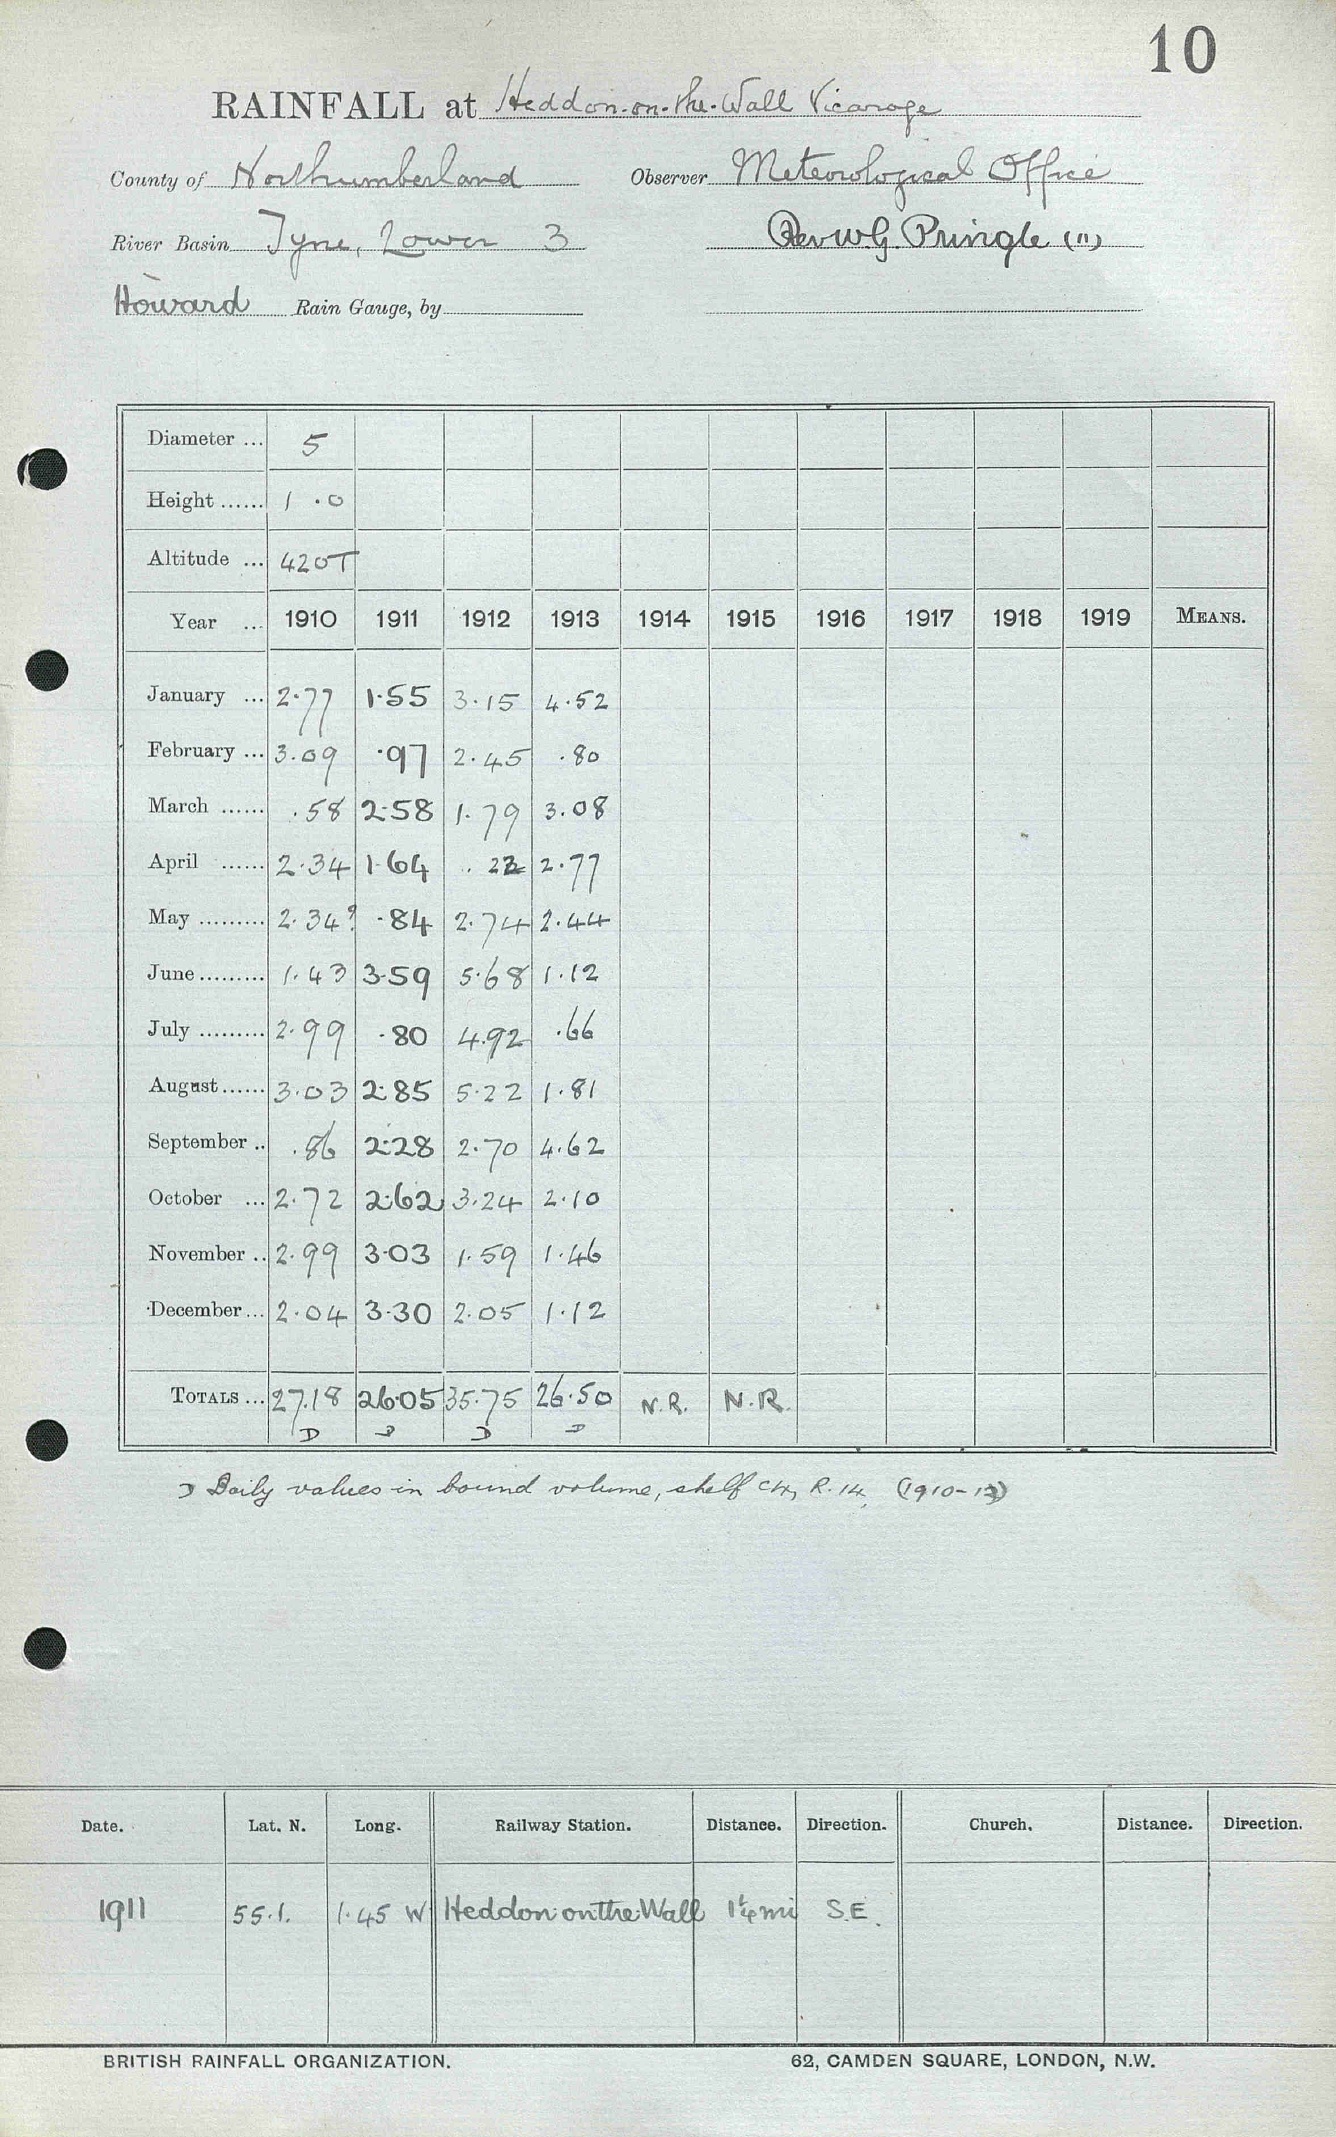 10
RAINFALL at Heddon-on-the-Wall Vicarage
County of Northumberland Observer Meteorological Office
River Basin Tyne, Lower 3 Rev W.G. Pringle (")
Howard Rain Gauge, by
Diameter ... 5
Height ...... 1 .0
Altitude ... 420T
Year ... 1910 1911 1912 1913 1914 1915 1916 1917 1918 1919 MEANS.
January ... 2.77 1.55 3.15 4.52
February ... 3.09 .97 2.45 .80
March ...... .58 2.58 1.79 3.08
April ...... 2.34 1.64 .22 2.77
May ......... 2.34? .84 2.74 2.44
June ......... 1.43 3.59 5.68 1.12
July ......... 2.99 .80 4.92 .66
August ...... 3.03 2.85 5.22 1.81
September .. .86 2.28 2.70 4.62
October ... 2.72 2.62 3.24 2.10
November .. 2.99 3.03 1.59 1.46
December ... 2.04 3.30 2.05 1.12
TOTALS ... 27.18 26.05 35.75 26.50 N.R. N.R.
D D D D
D Daily values in bound volume, shelf C4, R.14. (1910-13)
Date. Lat. N. Long. Railway Station. Distance. Direction. Church. Distance. Direction.
1911 55.1. 1.45 W Heddon on the Wall 1¼ mi S.E.
BRITISH RAINFALL ORGANIZATION. 62, CAMDEN SQUARE, LONDON, N.W.